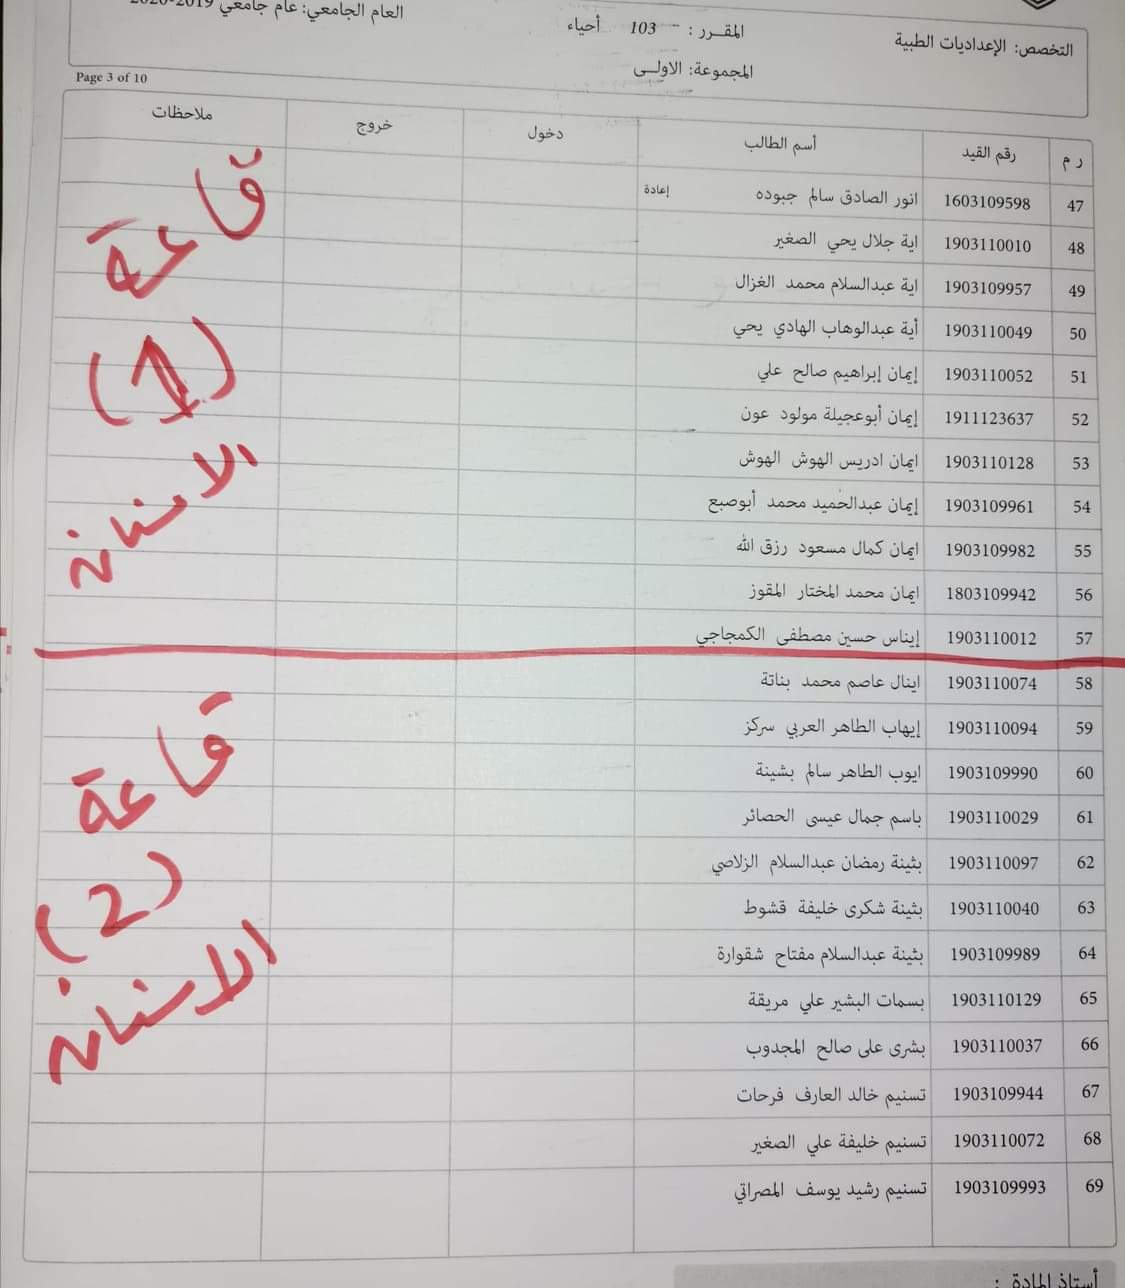 العام الجامعي: عام جامعي 2019-2020
التخصص: الإعداديات الطبية
المقـرر : 103 أحياء
المجموعة: الاولـى
Page 3 of 10
ر م رقم القيد أسم الطالب دخول خروج ملاحظات
47 1603109598 انور الصادق سالم جبوده إعادة
48 1903110010 اية جلال يحي الصغير
49 1903109957 اية عبدالسلام محمد الغزال
50 1903110049 أية عبدالوهاب الهادي يحي
51 1903110052 إيمان إبراهيم صالح علي
52 1911123637 إيمان أبوعجيلة مولود عون
53 1903110128 ايمان ادريس الهوش الهوش
54 1903109961 إيمان عبدالحميد محمد أبوصبع
55 1903109982 ايمان كمال مسعود رزق الله
56 1803109942 ايمان محمد المختار المقوز
57 1903110012 إيناس حسين مصطفى الكمجاجي
قاعة
(1)
الاسنان
58 1903110074 اينال عاصم محمد بناتة
59 1903110094 إيهاب الطاهر العربي سركز
60 1903109990 ايوب الطاهر سالم بشينة
61 1903110029 باسم جمال عيسى الحصائر
62 1903110097 بثينة رمضان عبدالسلام الزلاصي
63 1903110040 بثينة شكرى خليفة قشوط
64 1903109989 بثينة عبدالسلام مفتاح شقوارة
65 1903110129 بسمات البشير علي مريقة
66 1903110037 بشرى على صالح المجدوب
67 1903109944 تسنيم خالد العارف فرحات
68 1903110072 تسنيم خليفة علي الصغير
69 1903109993 تسنيم رشيد يوسف المصراتي
قاعة
(2)
الاسنان
أستاذ المادة :